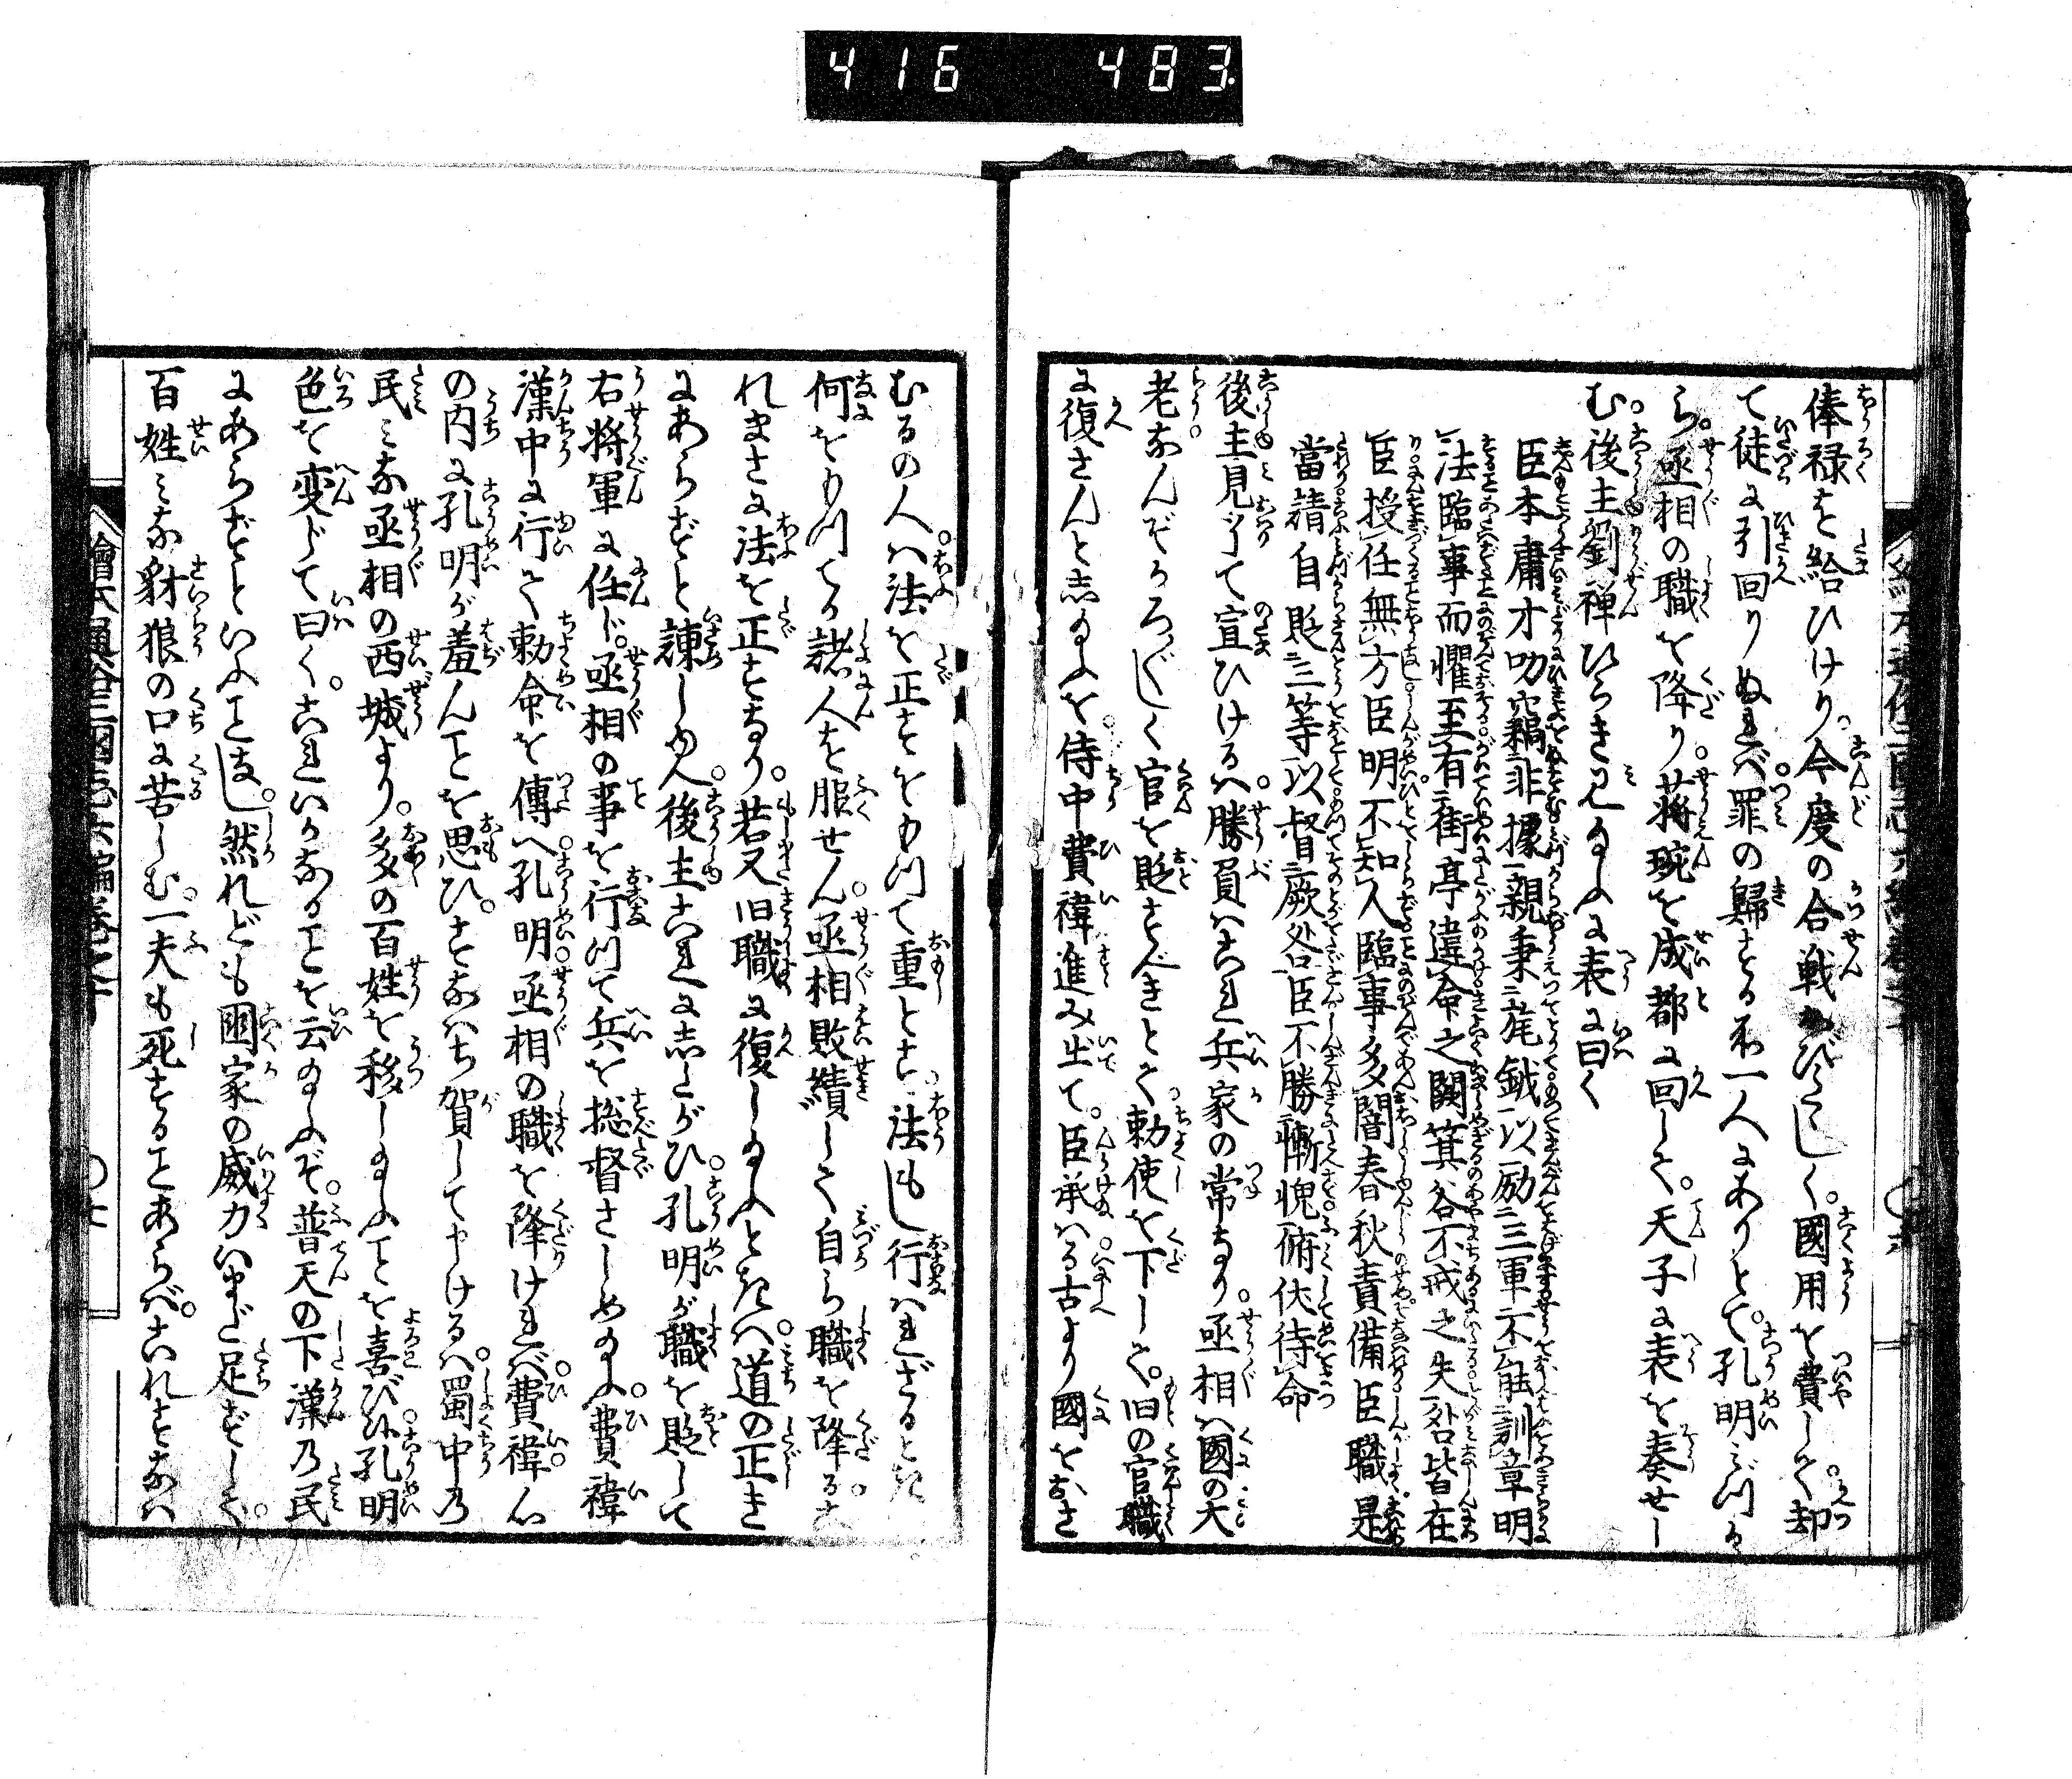 416 483
俸禄を給ひけり。今度の合戦おびたゝしく。國用を費して却
て徒に引回りぬれバ罪の歸する所一人にありとて。孔明ミづか
ら。丞相の職を降り。蒋琬を成都に回して。天子に表を奏せし
む。後主劉禅ひらき見るに表に曰く
臣本庸才叨竊非據親秉旄鉞以励三軍不能訓章明
法臨事而懼至有街亭違命之闕箕谷不戒之失咎皆在
臣授任無方臣明不知人臨事多闇春秋責備臣職是
當請自貶三等以督厥咎臣不勝慚愧俯伏待命
後主見了て宣ひけるハ。勝負ハこれ兵家の常なり。丞相ハ國の大
老なんぞかろ〴〵しく官を貶すべきとて勅使を下して。旧の官職
に復さんとし給ふを。侍中費禕進み出て。臣承ハる古より國をおさ
むるの人ハ。法を正すをもつて重とす。法もし行ハれざるとき
何をもつてか諸人を服せん。丞相敗績して自ら職を降るこ
れまさに法を正すなり。若又旧職に復し給ふときハ。道の正き
にあらずと諫しゆへ。後主これにしたがひ。孔明が職を貶して
右将軍に任じ。丞相の事を行つて兵を総督さしめ給ふ。費禕
漢中に行て勅命を傳へ孔明。丞相の職を降けれバ。費禕心
の内に孔明が羞んことを思ひ。すなハち賀して申けるハ。蜀中乃
民ミな丞相の西城より。多の百姓を移し給ふことを喜びぬ。孔明
色を変じて曰く。これいかなることを云給ふぞ。普天の下漢乃民
にあらずといふことなし。然れども國家の威力いまだ足ずして。
百姓ミな豺狼の口に苦しむ。一夫も死することあらバ。これすなハ
繪本通俗三國志六編巻之十